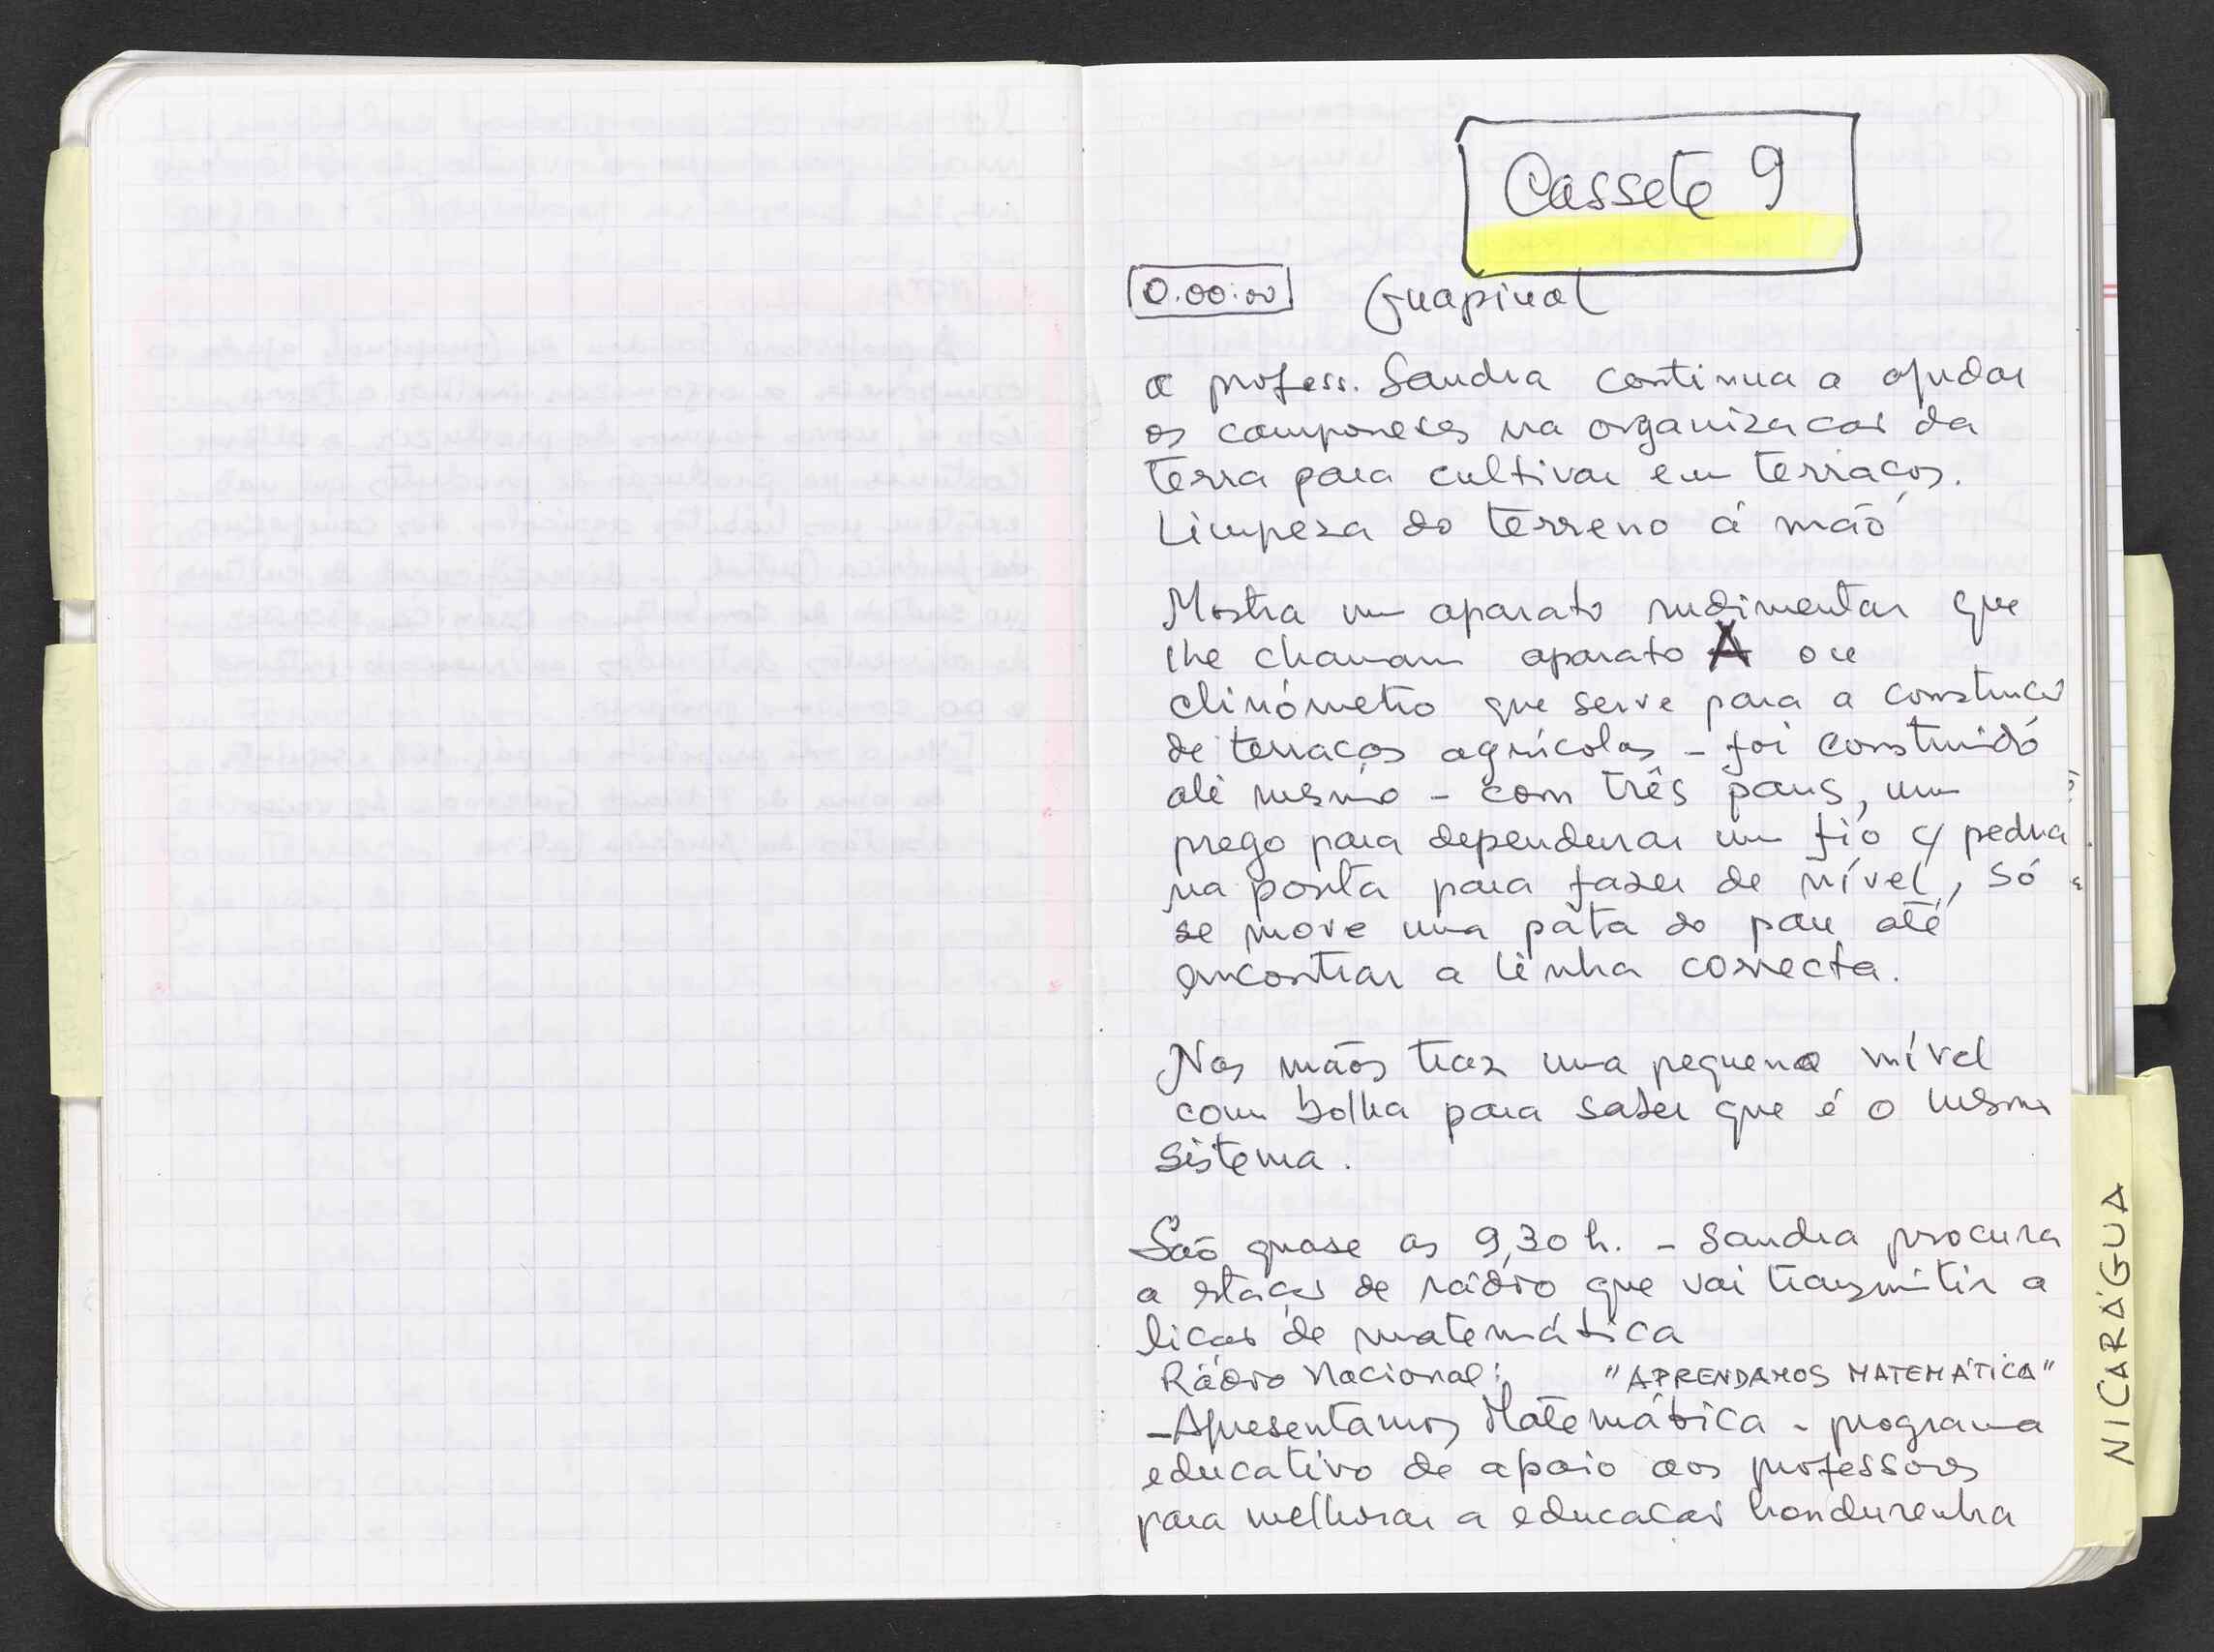 Cassete 9
0.00:00 Guapinol
a profess. Sandra continua a ajudar
os camponeses na organização da
terra para cultivar em terraços.
Limpeza do terreno à mão
Mostra um aparato rudimentar que
lhe chamam aparato A ou
clinómetro que serve para a construção
de terraços agrícolas - foi construído
ali mesmo - com três paus, um
prego para dependurar um fio c/ pedra
na ponta para fazer de nível, só
se move uma pata do pau até
encontrar a linha correcta.
Nas mãos traz uma pequena nível
com bolha para saber que é o mesmo
sistema.
São quase as 9,30 h. - Sandra procura
a estação de rádio que vai transmitir a
lição de matemática
Rádio Nacional: "APRENDAMOS MATEMÁTICA"
- Apresentamos Matemática - programa
educativo de apoio aos professores
para melhorar a educação hondurenha
NICARÁGUA